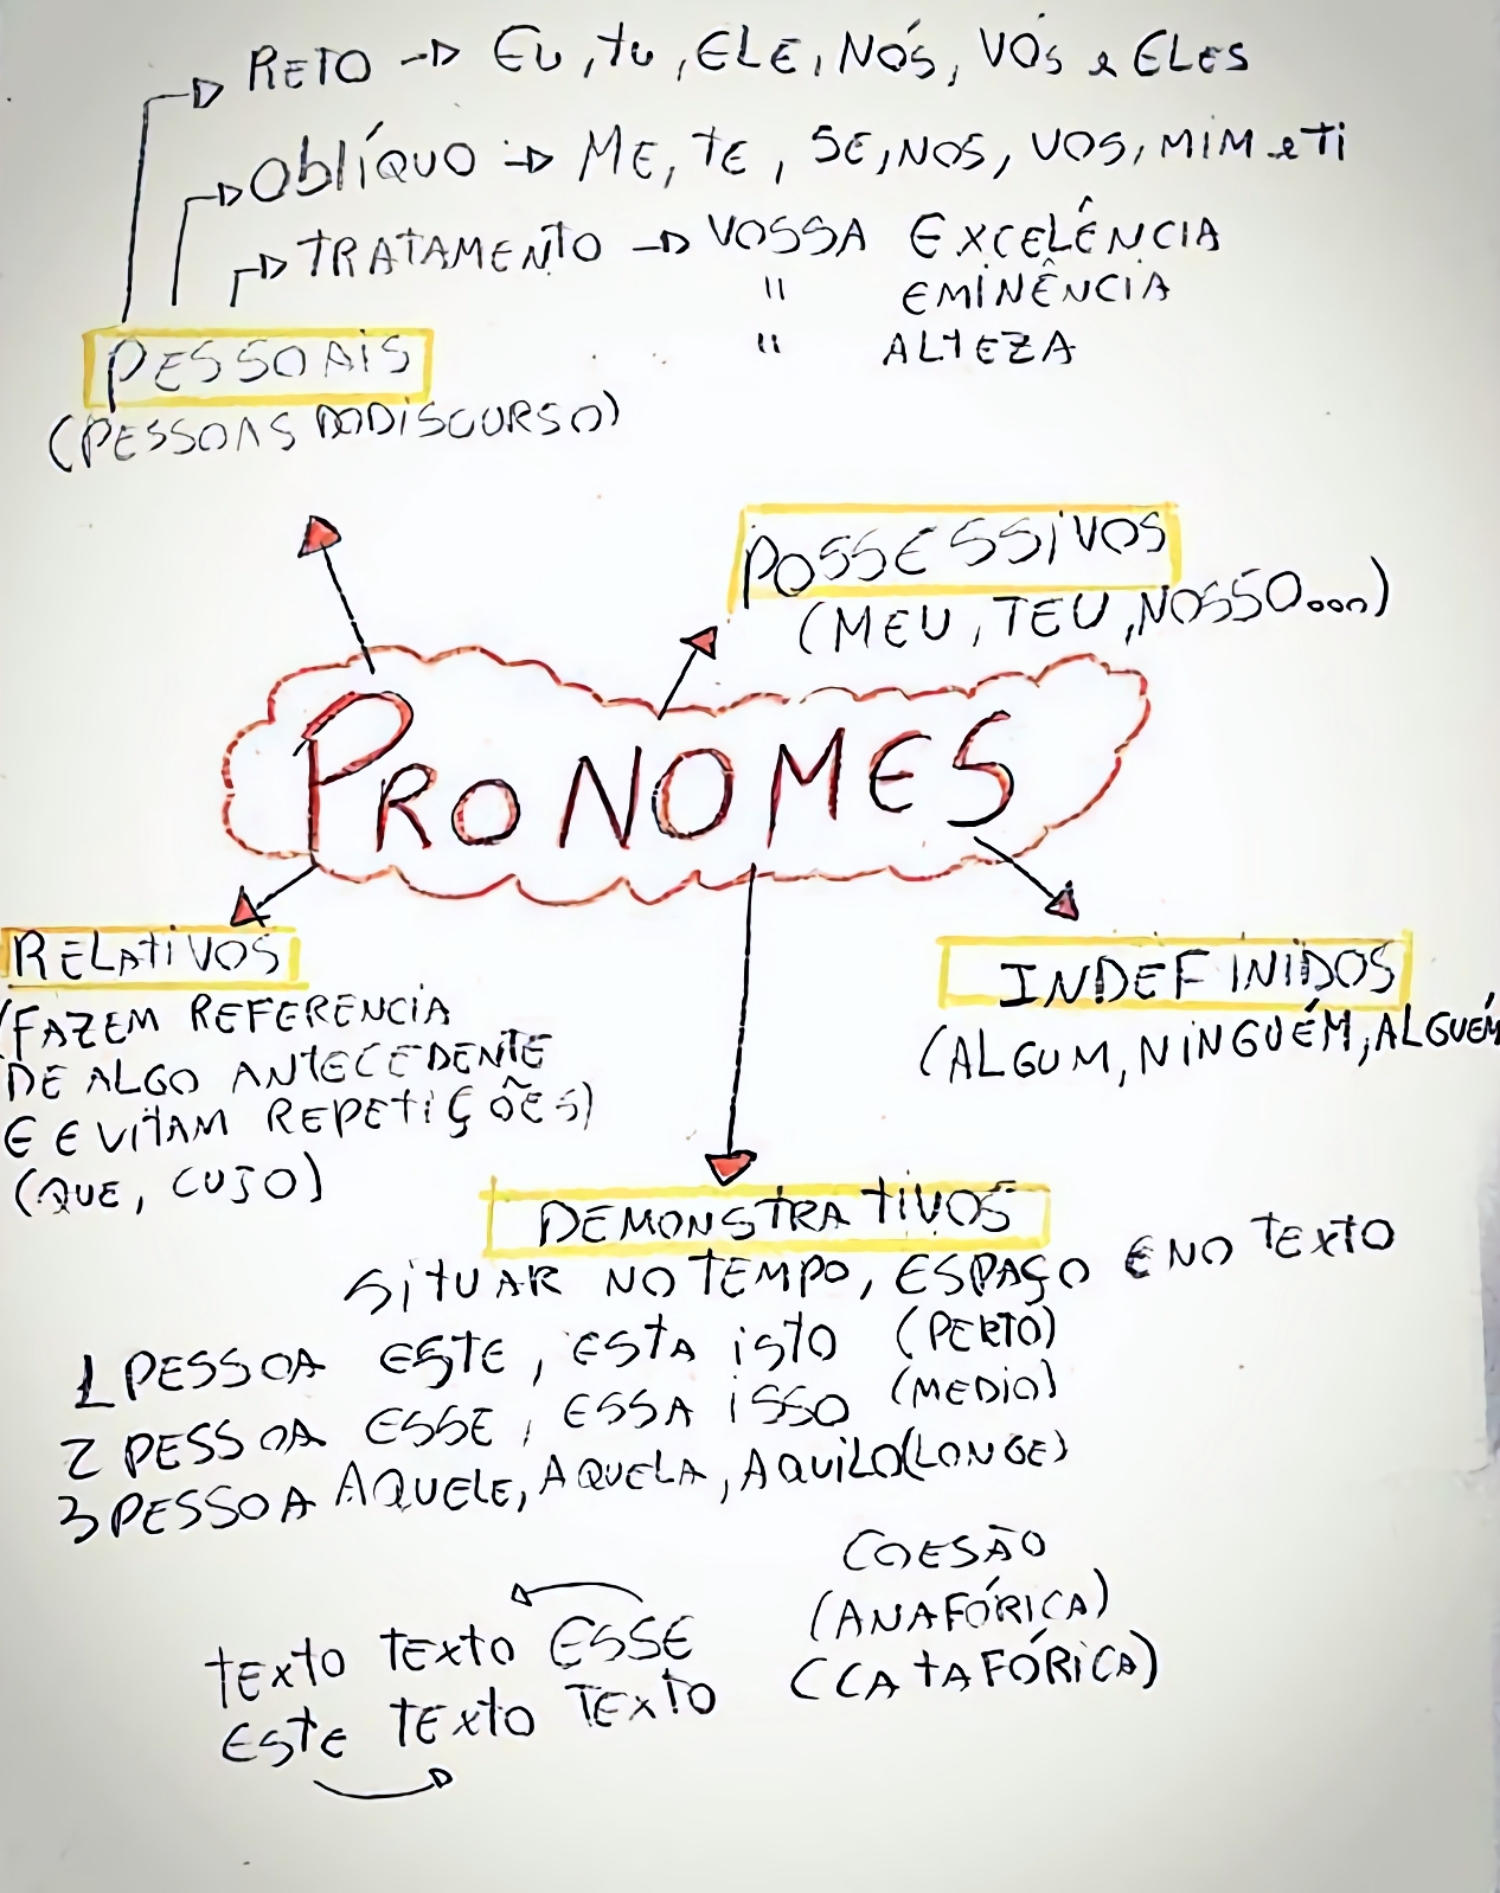 RETO → EU, tu, ELE, NÓS, VÓS e ELES
OblÍQUO → ME, TE, SE, NOS, VOS, MIM e Ti
TRATAMENTO → VOSSA EXCELÊNCIA
" EMINÊNCIA
" ALTEZA
PESSOAIS
(PESSOAS DO DISCURSO)
POSSESSIVOS
(MEU, TEU, NOSSO...)
PRONOMES
RELATIVOS
(FAZEM REFERENCIA
DE ALGO ANTECEDENTE
E EVITAM REPETIÇÕES)
(QUE, CUJO)
INDEFINIDOS
(ALGUM, NINGUÉM, ALGUÉM
DEMONSTRATIVOS
SITUAR NO TEMPO, ESPAÇO E NO TEXTO
1 PESSOA ESTE, ESTA ISTO (PERTO)
2 PESSOA ESSE, ESSA ISSO (MEDIO)
3 PESSOA AQUELE, AQUELA, AQUILO (LONGE)
COESÃO
TEXTO TEXTO ESSE (ANAFÓRICA)
ESTE TEXTO TEXTO (CATAFÓRICA)